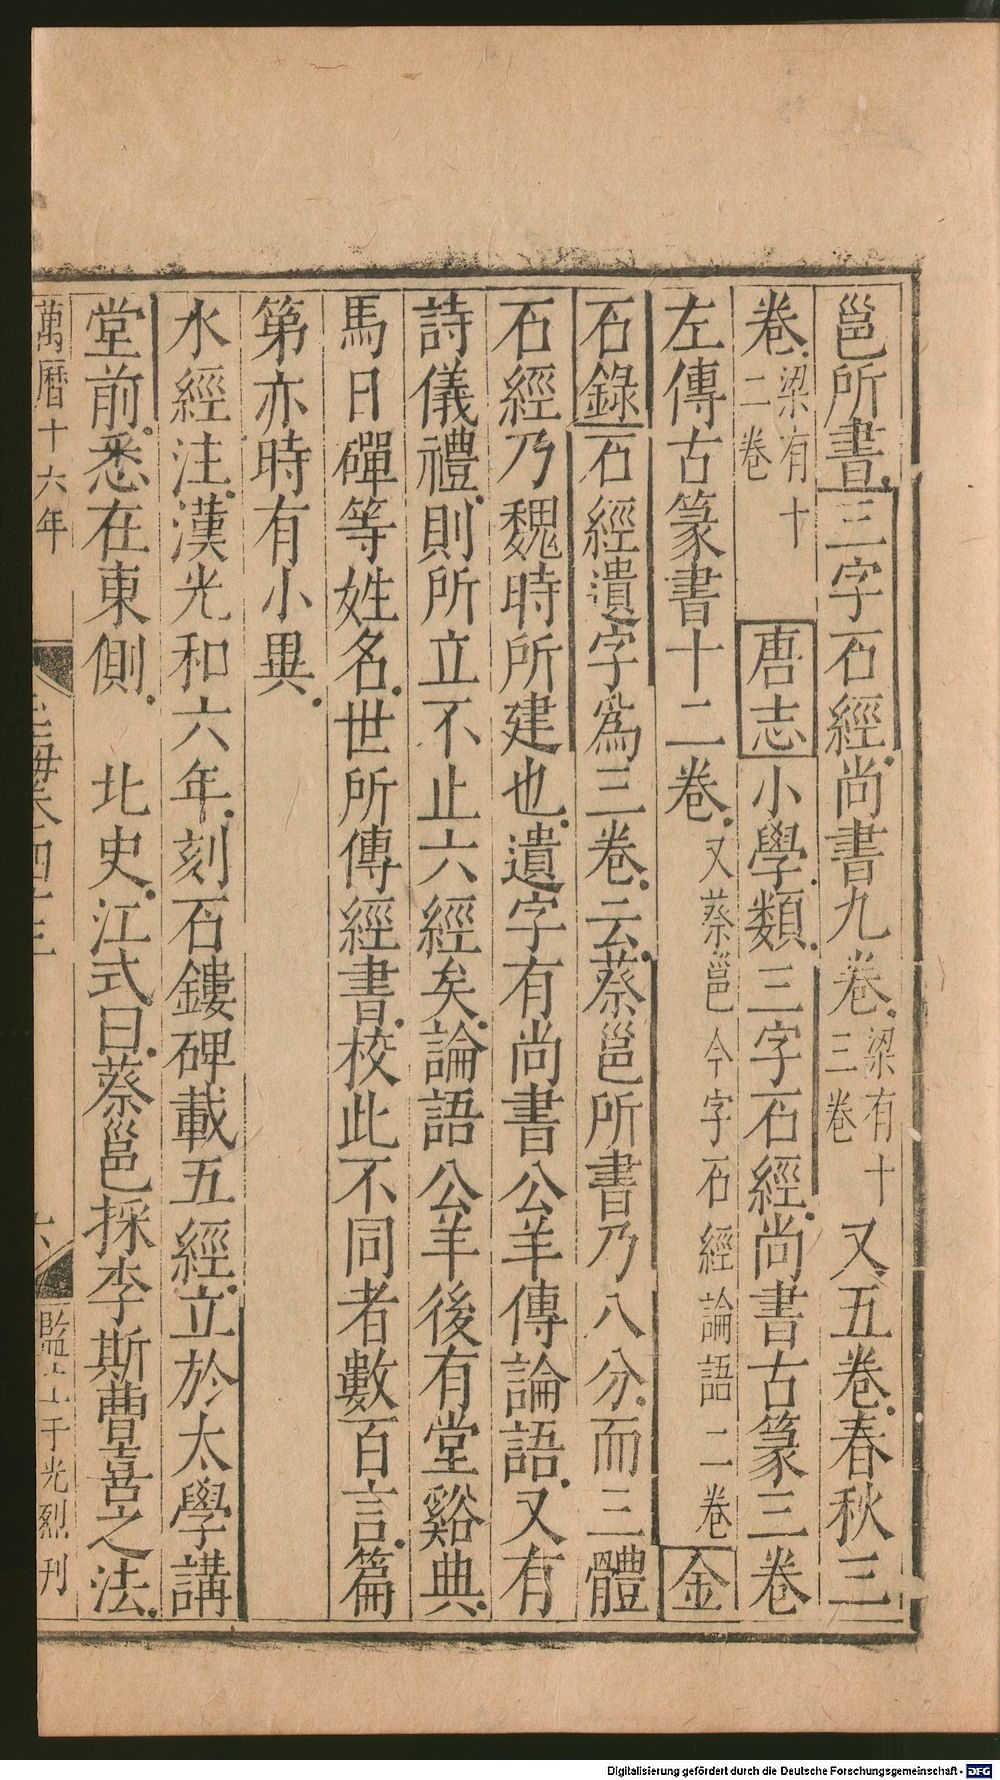 邕所書三字石經尚書九卷梁有十三卷又五卷春秋三
卷梁有十二卷唐志小學類三字石經尚書古篆三卷
左傳古篆書十二卷又蔡邕今字石經論語二卷金
石錄石經遺字為三卷云蔡邕所書乃八分而三體
石經乃魏時所建也遺字有尚書公羊傳論語又有
詩儀禮則所立不止六經矣論語公羊後有堂谿典
馬日磾等姓名世所傳經書校此不同者數百言篇
第亦時有小異
水經注漢光和六年刻石鏤碑載五經立於太學講
堂前悉在東側 北史江式曰蔡邕採李斯曹喜之法
萬曆十六年
監生于光烈刊
Digitalisierung gefördert durch die Deutsche Forschungsgemeinschaft - DFG